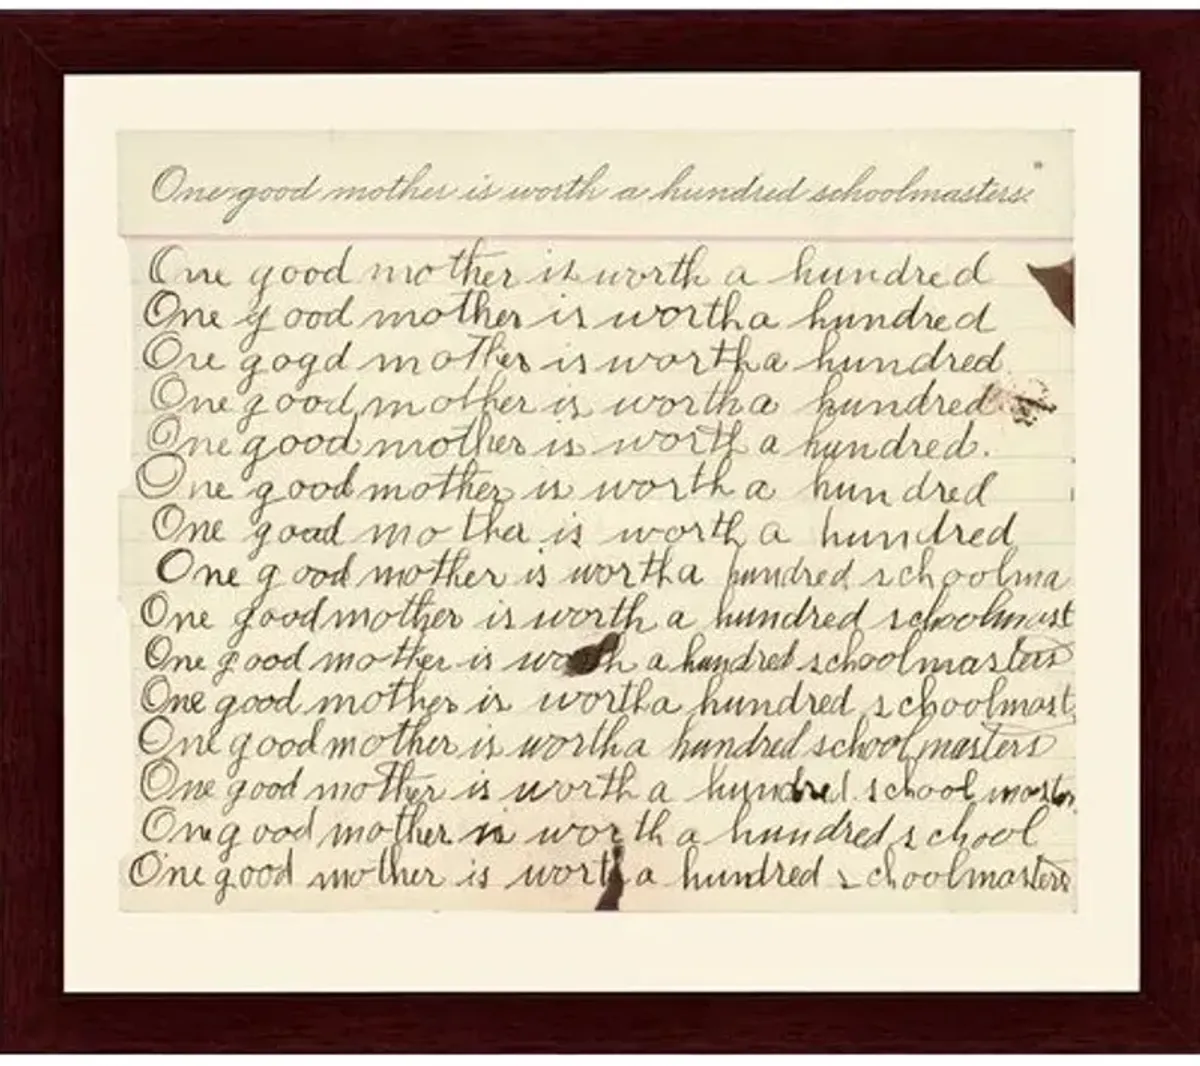 One good mother is worth a hundred schoolmasters.
One good mother is worth a hundred
One good mother is worth a hundred
One gogd mother is worth a hundred
One good mother is worth a hundred
One good mother is worth a hundred.
One good mother is worth a hundred
One good mother is worth a hundred
One good mother is worth a hundred schoolma
One good mother is worth a hundred schoolmast
One good mother is worth a hundred schoolmasters
One good mother is worth a hundred schoolmast
One good mother is worth a hundred schoolmasters
One good mother is worth a hundred school master
One good mother is worth a hundred school
One good mother is worth a hundred schoolmasters